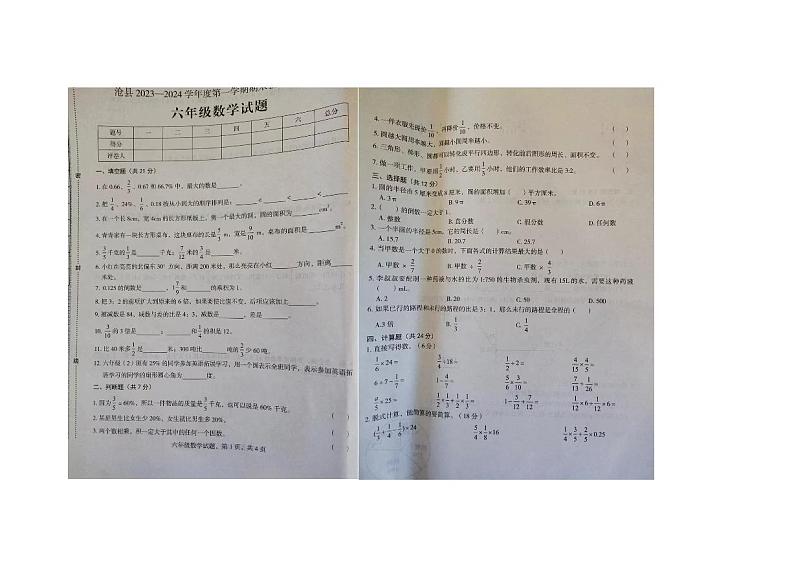 沧县 2023—2024 学年度第一学期期末
六年级数学试题
题号 一 二 三 四 五 六 总分
得分
评卷人
一、填空题（共 21 分）
1. 在 0.66、2/3、0.67 和 66.7% 中，最大的数是______。
2. 把 1/4、24%、1/6、0.18 按从小到大的顺序排列是：______＜______＜______＜______
3. 在一个长 8cm，宽 4cm 的长方形纸板上，剪一个最大的圆，圆的面积为______cm²。
4. 青青家有一块长方形桌布，这块桌布的长是 5/3 m，宽是 9/10 m，桌布的面积是______m²。
5. 3/5 千克的 是______千克；7/12 米的 3/4 是______米。
6. 小红在亮亮的北偏东 30° 方向，距离 200 米处，那么亮亮在小红______方向，距离______米处。
7. 0.125 的倒数是______，1 7/9 和______的乘积为 1。
8. 把 3：2 的前项扩大到原来的 6 倍，如果要使比值不变，后项应该加上______。
9. 被减数是 84，减数与差的比是 4：3，减数是______，差是______。
10. 3/10 的 3 倍是______；______和 1/4 的积是 12。
11. 比 40 米多 1/2 是______米；300 吨比______吨的 2/3 少 60 吨。
12. 六年级（2）班有 25% 的同学参加英语拓展学习，用一个圆表示全班同学，表示参加英语拓
展学习的同学的扇形圆心角为______度。
二、判断题（共 7 分）
1. 因为 3/5＝60%，所以一件物品的质量是 3/5 千克，也可以说是 60% 千克。（ ）
2. 某班男生比女生少 20%，女生就比男生多 20%。（ ）
3. 两个数相乘，积一定大于其中的任何一个因数。（ ）
六年级数学试题，第 1 页，共 4 页
4. 一件衣服先提价 1/10，再降价 1/10，价格不变。（ ）
5. 圆越大圆周率越大，圆越小圆周率越小。（ ）
6. 三角形、梯形、圆都可以转化成平行四边形，转化前后图形的周长、面积不变。（ ）
7. 做一项工作，甲要用 1/2 小时，乙要用 1/3 小时，他们的工作效率比是 3:2。（ ）
三、选择题（共 12 分）
1. 圆的半径由 5 厘米变成 8 厘米，圆的面积增加（ ）平方厘米。
A. 3π B. 9π C. 39π D. 6π
2. （ ）的倒数一定大于 1。
A. 整数 B. 真分数 C. 假分数 D. 任何数
3. 一个半圆的半径是 5cm，它的周长是（ ）cm。
A. 15.7 B. 20.7 C. 25.7
4. 当甲数是一个大于 0 的数时，下面各式的计算结果最大的是（ ）
A. 甲数 × 2/7 B. 甲数 ÷ 2/7 C. 甲数 × 4/3
5. 李叔叔要配制一种药液与水的比为 1:750 的生物杀虫剂，现有 15L 的水，需要这种药液
（ ）mL。
A. 2 B. 20 C. 50 D. 500
6. 如果已行的路程和未行的路程的比是 3：1，那么未行的路程是全程的（ ）
A.3 倍 B. 1/3 C. 1/4
四、计算题（共 24 分）
1. 直接写得数。（6 分）
1/6×24＝ 3/4÷18＝ 1/2÷2＝ 4/15×5/4＝
6÷7－1/7＝ 1－4/7＝ 5/6×3/10＝ 7/13÷1/26＝
/5×25＝ 1/2÷1/3×1/2÷1/3＝ 1－5/12＋7/12＝ 1/6×6÷1/6×6＝
2. 脱式计算，能简算的要简算。（18 分）
(1/3＋1/4－1/6)×24 5/4×1/8×16 1/4×3/5÷2/5×0.25